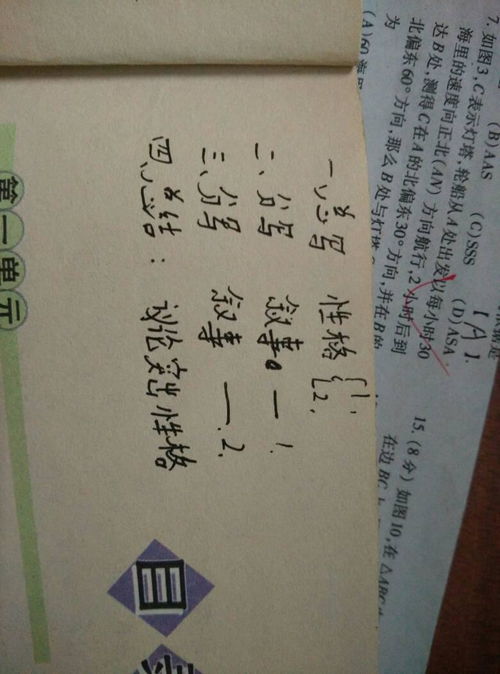 (B)AAS (C)SSS (D)ASA
【A】.
7. 如图3,C表示灯塔,轮船从A处出发以每小时30
海里的速度向正北(AN)方向航行,2小时后到
达B处,测得C在A的北偏东30°方向,并在B的
北偏东60°方向,那么B处与灯塔
为
(A)60海里
15. (8分)如图10,在△ABC
在边BC上
一、总写 性格{1,
2,
二、分写 叙事 — 1.
三、分写 叙事 — 2.
四、总结: 议论突出性格
目
第一单元